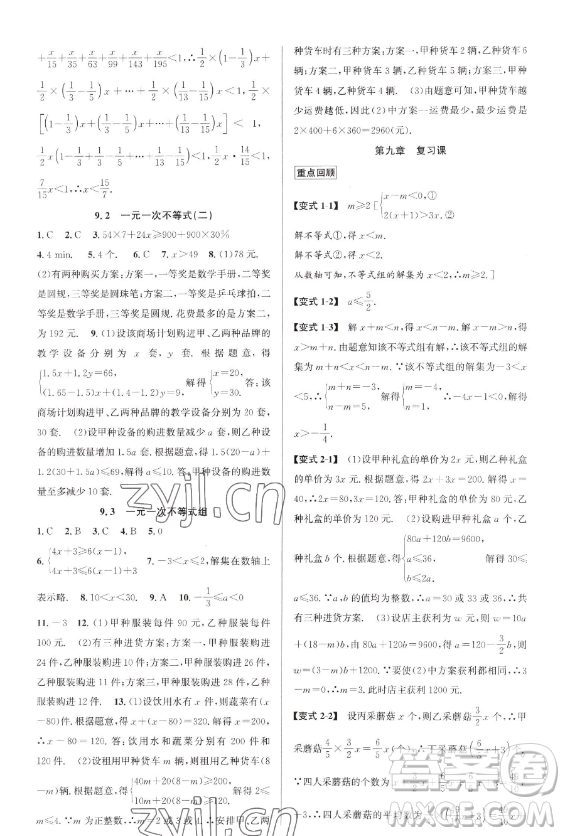 +x/15+x/35+x/63+x/99+x/143+x/195<1,∴1/2×(1-1/3)x+
1/2×(1/3-1/5)x+…+1/2×(1/13-1/15)x<1,∴1/2×
[(1-1/3)x+(1/3-1/5)x+…+(1/13-1/15)x]<1,
1/2(1-1/3+1/3-1/5+…+1/13-1/15)x<1,∴
7/15x<1,∴x<15/7.
9.2 一元一次不等式(二)
1.C 2.C 3.54×7+24x≥900+900×30%
4.4 min. 5.C 6.C 7.x>49 8.(1)78元.
(2)有两种购买方案:方案一,一等奖是数学手册,二等奖是
数学手册,三等奖是圆珠笔;方案二,一等奖是乒乓球拍,二
等奖是数学手册,三等奖是圆规.花费最多的是方案二,
为192元. 9.(1)设该商场计划购进甲、乙两种品牌的
教学设备分别为x套,y套.根据题意,得
{1.5x+1.2y=66, (1.65-1.5)x+(1.4-1.2)y=9. 解得{x=20, y=30. 答:该
商场计划购进甲、乙两种品牌的教学设备分别为20套,
30套. (2)设甲种设备的购进数量减少a套,则乙种设备的
购进数量增加1.5a套.根据题意,得1.5(20-a)+
1.2(30+1.5a)≤69.解得a≤10.答:甲种设备购进数量
至多减少10套.
9.3 一元一次不等式组
1.C 2.C 3.A 4.B 5.0
6.{4x+3≥6(x-1), 4x+3≤6(x-1)+2 7.-3<x≤2,解集在数轴上
表示略. 8.10<x<30 9.A 10.-1/3≤a≤0
11.-3 12.(1)甲种服装每件90元,乙种服装每件
100元. (2)有三种进货方案:方案一,甲种服装购进
24件,乙种服装购进10件;方案二,甲种服装购进26件,
乙种服装购进11件;方案三,甲种服装购进28件,乙种
服装购进12件. 13.(1)设饮用水有x件,蔬菜有
(x-80)件.根据题意,得x+(x-80)=320.解得x=200.
∴x-80=120.答:饮用水和蔬菜分别为200件和120件.
(2)设租用甲种货车m辆,则租用乙种货车(8-m)
辆.根据题意,得{40m+20(8-m)≥200, 10m+20(8-m)≥120. 解得2≤
m≤4.∵m为正整数,∴m=2或3或4.∴安排甲、乙两
种货车时有三种方案:方案一,甲种货车2辆,乙种货车6
辆;方案二,甲种货车3辆,乙种货车5辆;方案三,甲种
货车4辆,乙种货车4辆. (3)由题意可知,甲种货车越少
运费越低,因此(2)中方案一运费最少,最少运费是
2×400+6×360=2960(元).
第九章 复习课
重点回顾
【变式1-1】 m≥2 [{x-m<0,① 2(x+1)>3x.②
解不等式①,得x<m.
解不等式②,得x<2.
从数轴可知,不等式组的解集为x<2,∴m≥2.]
【变式1-2】 a≤5/2.
【变式1-3】 解x+m<n,得x<n-m.解x-m>n,得
x>m+n.由题意知该不等式组有解,∴该不等式组的解
集为m+n<x<n-m.∵该不等式组的解集为-3<x
<5,∴{m+n=-3, n-m=5. 解得{m=-4, n=1. ∴-4x-1<0,解得
x>-1/4.
【变式2-1】 (1)设甲种礼盒的单价为2x元,乙种礼盒
的单价为3x元.根据题意,得2x+3x=200.解得x=
40.∴2x=80,3x=120.答:甲种礼盒的单价为80元,乙
种礼盒的单价为120元. (2)设购进甲种礼盒a个,乙种
礼盒b个.根据题意,得{80a+120b=9600, a≤36, b≤2a. 解得30≤
a≤36.∵a,b的值均为整数,∴a=30或33或36.∴
共有三种进货方案. (3)设店主获利为w元,则w=10a
+(18-m)b.由80a+120b=9600,得a=120-3/2b.则w
=(3-m)b+1200.∵(2)中方案获利都相同,∴
3-m=0.∴m=3.此时店主获利1200元.
【变式2-2】 设丙采蘑菇x个,则乙采蘑菇3/2x个,甲
zyjl.cn
答案圈